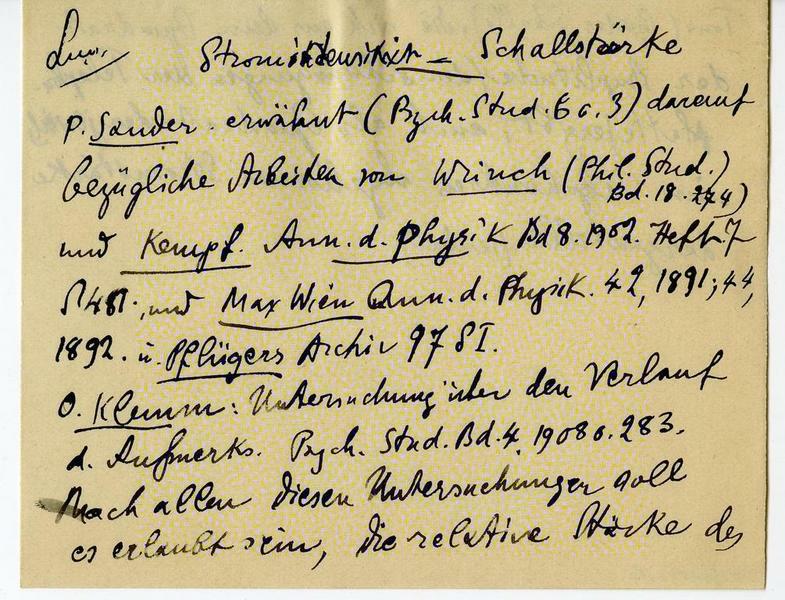 Stromintensität – Schallstärke
p. Sander. erwähnt (Psych. Stud. 6 s. 3) darauf
bezügliche Arbeiten von Wrinch (Phil. Stud.)
Bd. 18. 274)
und Kempf. Ann. d. Physik Bd 8. 1902. Heft 7
S 481. und Max Wien Ann. d. Physik. 42, 1891; 44,
1892. u. Pflügers Archiv 97 S I.
O. Klemm: Untersuchung über den Verlauf
d. Aufmerks. Psych. Stud. Bd. 4. 1908 s. 283.
Nach allen diesen Untersuchungen soll
es erlaubt sein, die relative Stärke des